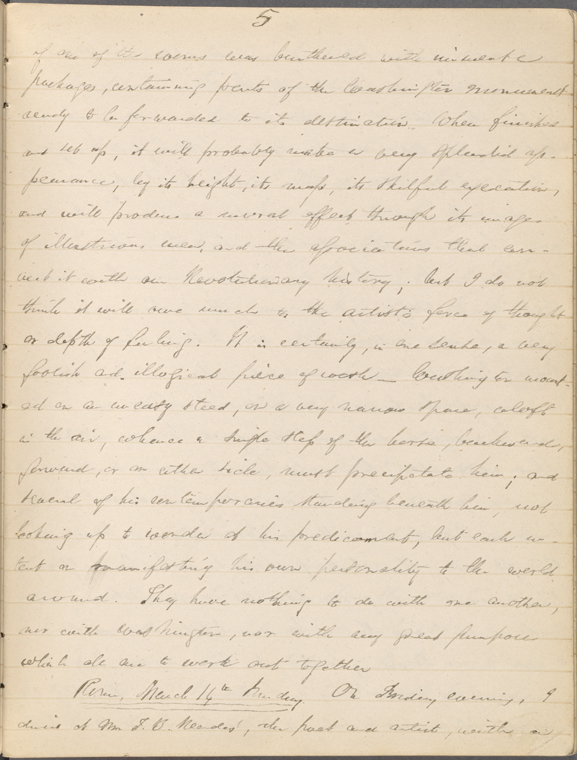 5
of one of the rooms was burthened with immense
packages, containing parts of the Washington monument
ready to be forwarded to its destination. When finished
and set up, it will probably make a very splendid ap-
pearance, by its height, its mass, its skilful execution,
and will produce a moral effect through its images
of illustrious men, and the associations that con-
nect it with our Revolutionary history; but I do not
think it will owe much to the artist's force of thought
or depth of feeling. It is certainly, in one sense, a very
foolish and illogical piece of work — Washington mount-
ed on an uneasy steed, on a very narrow space, aloft
in the air, whence a single step of the horse, backward,
forward, or on either side, must precipitate him; and
several of his contemporaries standing beneath him, not
looking up to wonder at his predicament, but each in-
tent on manifesting his own personality to the world
around. They have nothing to do with one another,
nor with Washington, nor with any great purpose
which all are to work out together
Rome, March 14th Sunday On Friday evening, I
dined at Mr T. B. Read's, the poet and artist, with